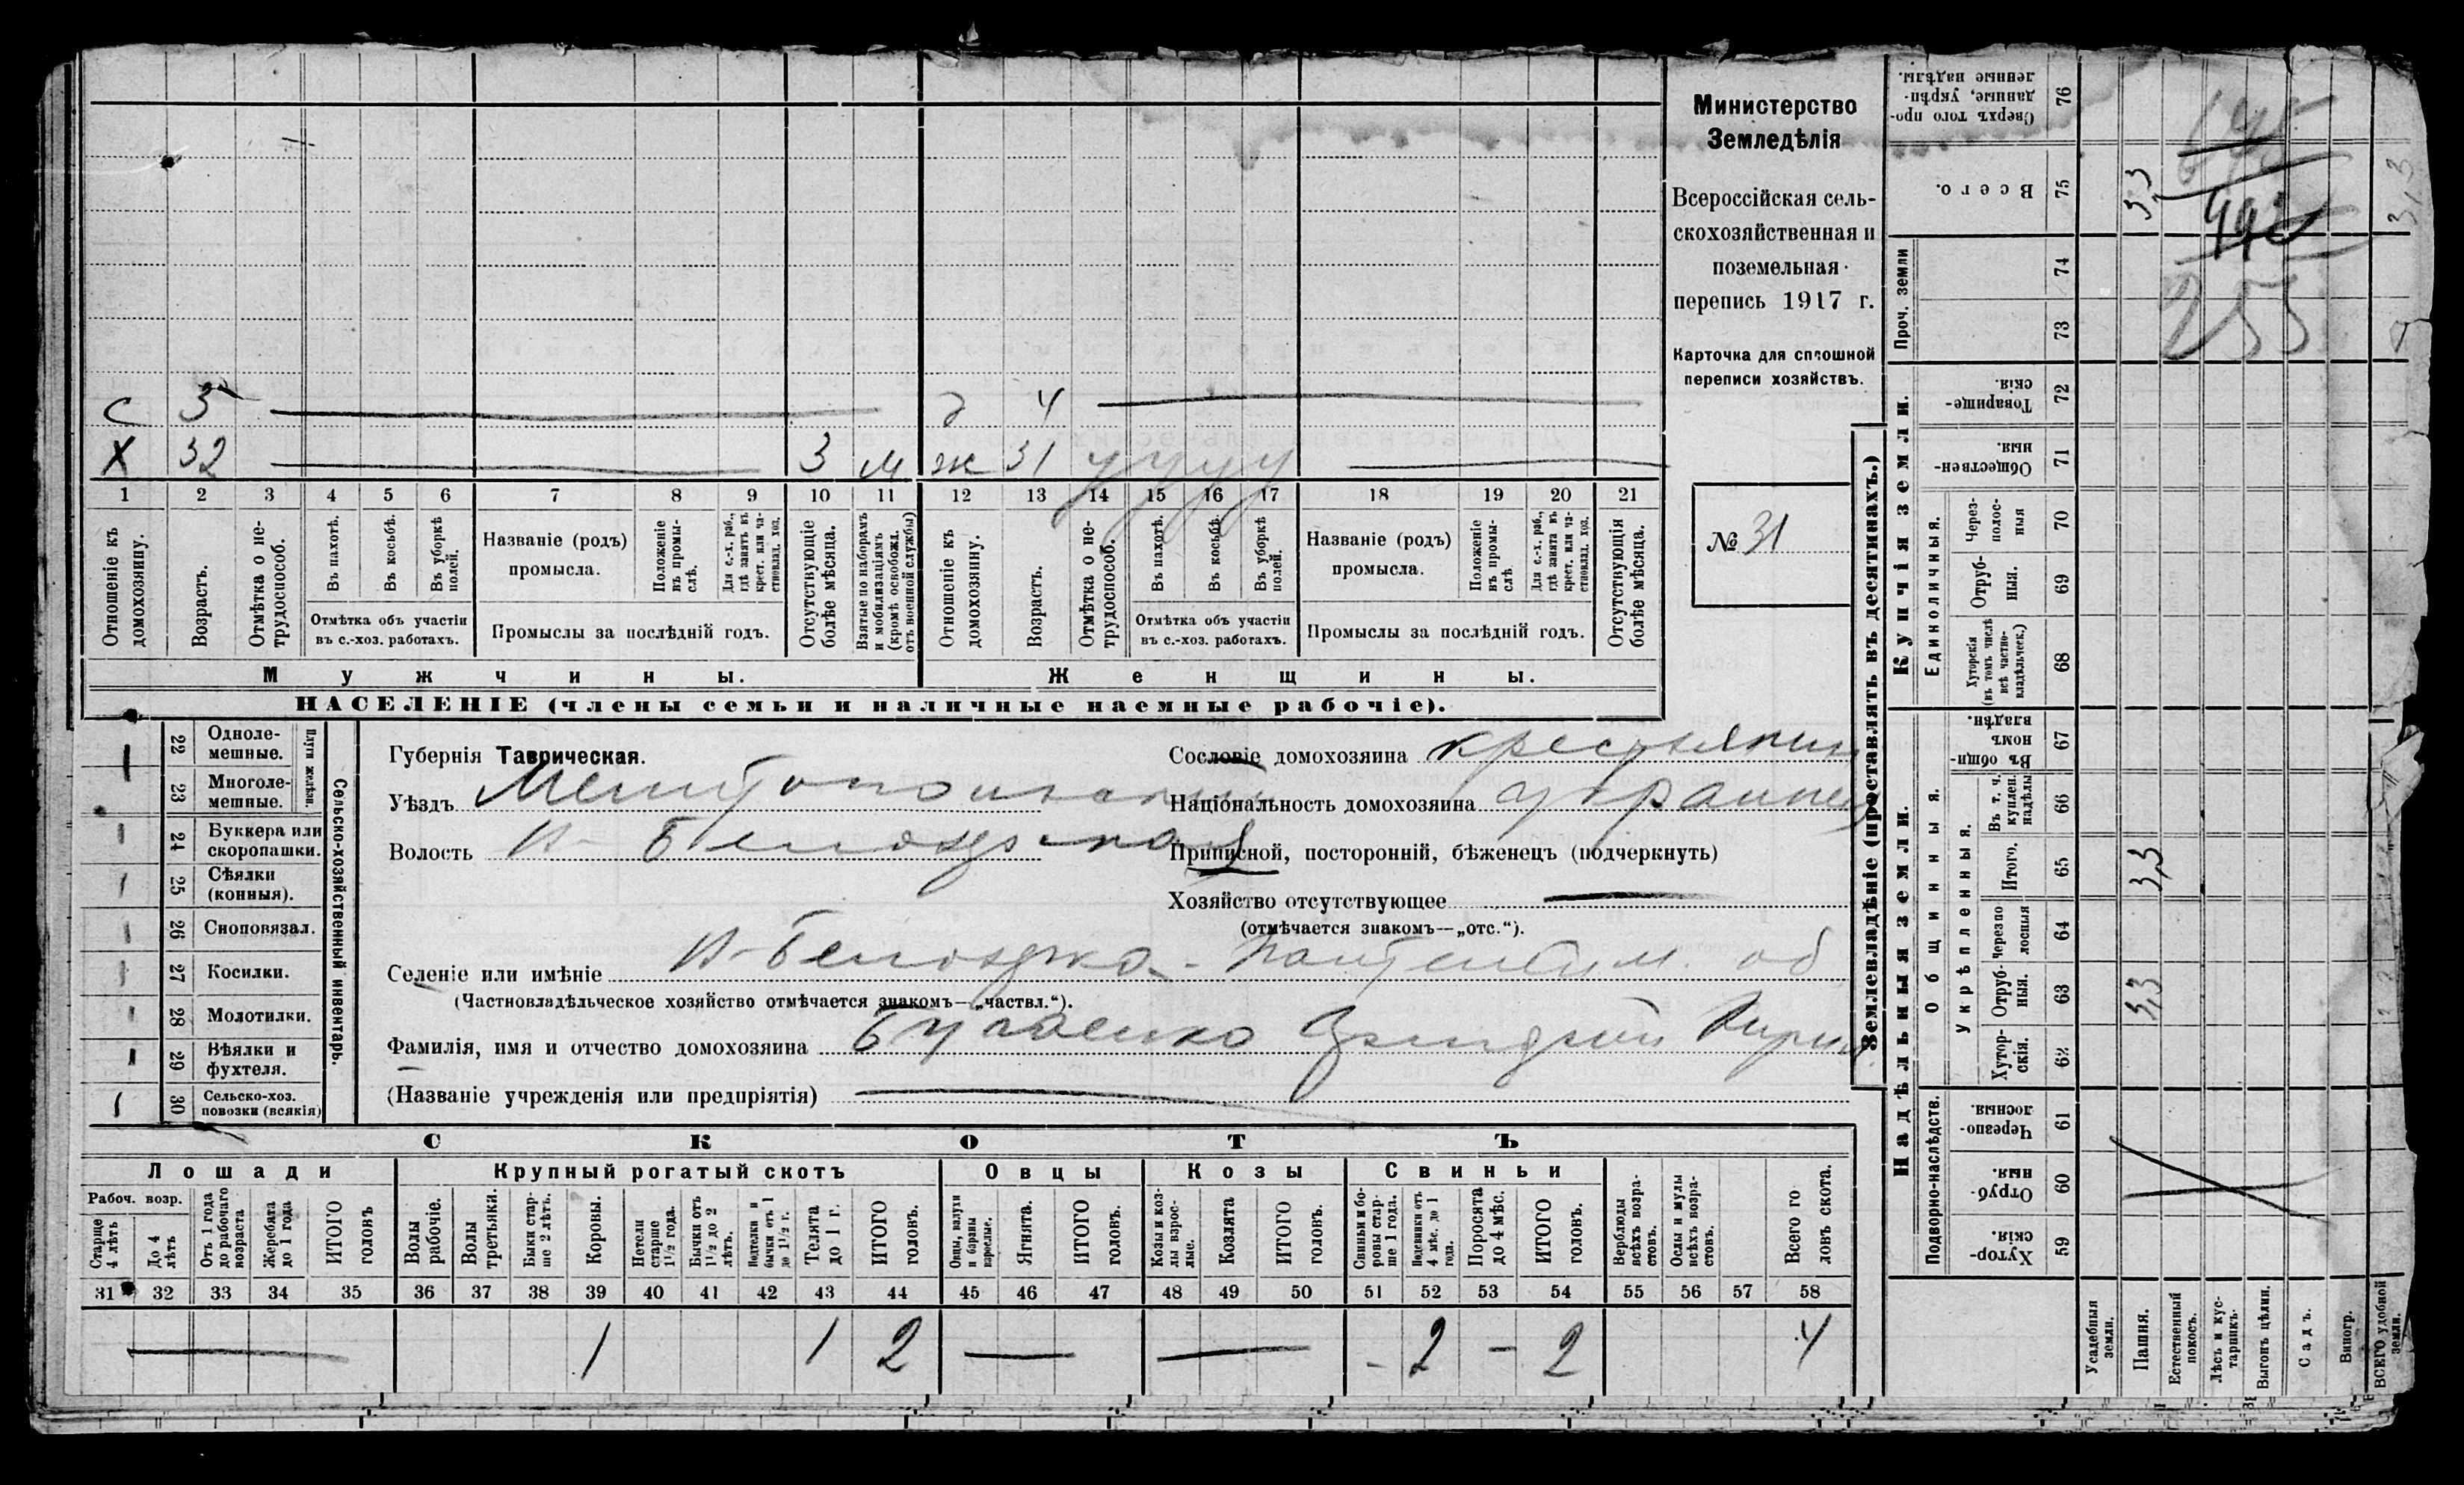 Министерство
Земледѣлія
Всероссійская сель-
скохозяйственная и
поземельная
перепись 1917 г.
Карточка для сплошной
переписи хозяйствъ.
№ 31
с 5 д 4
х 32 3 м ж 31 у у у у
1 2 3 4 5 6 7 8 9 10 11 12 13 14 15 16 17 18 19 20 21
Отношеніе къ домохозяину.
Возрастъ.
Отмѣтка о не-трудоспособ.
Въ пахотѣ.
Въ косьбѣ.
Въ уборкѣ полей.
Отмѣтка объ участіи
въ с.-хоз. работахъ.
Названіе (родъ)
промысла.
Положеніе въ промы-слѣ.
Для с.-х. раб., гдѣ занятъ въ крест. или ча-стновлад. хоз.
Промыслы за послѣдній годъ.
Отсутствующіе болѣе мѣсяца.
Взятые по наборамъ и мобилизаціямъ (кромѣ освобожд. отъ военной службы)
Отношеніе къ домохозяину.
Возрастъ.
Отмѣтка о не-трудоспособ.
Въ пахотѣ.
Въ косьбѣ.
Въ уборкѣ полей.
Отмѣтка объ участіи
въ с.-хоз. работахъ.
Названіе (родъ)
промысла.
Положеніе въ промы-слѣ.
Для с.-х. раб., гдѣ занята въ крест. или ча-стновлад. хоз.
Промыслы за послѣдній годъ.
Отсутствующія болѣе мѣсяца.
Мужчины. Женщины.
НАСЕЛЕНІЕ (члены семьи и наличные наемные рабочіе).
22 Одноле-мешные.
23 Многоле-мешные.
Плуги желѣзн.
24 Буккера или скоропашки.
25 Сѣялки (конныя).
26 Сноповязал.
27 Косилки.
28 Молотилки.
29 Вѣялки и фухтеля.
30 Сельско-хоз. повозки (всякія)
Сельско-хозяйственный инвентарь.
Губернія Таврическая.
Уѣздъ Мелитопольский
Волость Н-Белозерская
Сословіе домохозяина крестьянин
Національность домохозяина украинец
Приписной, посторонній, бѣженецъ (подчеркнуть)
Хозяйство отсутствующее
(отмѣчается знакомъ—„отс.“).
Селеніе или имѣніе Н-Белозерка - об
(Частновладѣльческое хозяйство отмѣчается знакомъ—„частвл.“).
Фамилія, имя и отчество домохозяина
(Названіе учрежденія или предпріятія)
СКОТЪ
Лошади Крупный рогатый скотъ Овцы Козы Свиньи
Рабоч. возр.
Старше 4 лѣтъ
До 4 лѣтъ
Отъ 1 года до рабочаго возраста
Жеребята до 1 года
ИТОГО головъ
Волы рабочіе.
Волы третьяки.
Быки стар-ше 2 лѣтъ.
Коровы.
Нетели старше 1½ года.
Бычки отъ 1½ до 2 лѣтъ.
бычки отъ 1 до 1½ г.
Телята до 1 г.
ИТОГО головъ.
Овцы, валухи и бараны взрослые.
Ягнята.
ИТОГО головъ.
Козы и коз-лы взрос-лые.
Козлята
ИТОГО головъ.
Свиньи и бо-ровы стар-ше 1 года.
Подсвинки отъ 4 мѣс. до 1 года.
Поросята до 4 мѣс.
ИТОГО головъ.
Верблюды всѣхъ возра-стовъ.
Ослы и мулы всѣхъ возра-стовъ.
Всего го ловъ скота.
31 32 33 34 35 36 37 38 39 40 41 42 43 44 45 46 47 48 49 50 51 52 53 54 55 56 57 58
1 1 2 - 2 - 2 4
Землевладѣніе (проставлять въ десятинахъ.)
Надѣльныя земли. Купчія земли. Проч. земли
Подворно-наслѣдств.
Общинныя.
Укрѣпленныя.
Единоличныя.
76 Сверхъ того про-данные, укрѣп-ленные надѣлы.
75 Всего. 3,3 3,3
74
73
72 Товарище-скія.
71 Обществен-ныя.
70 Через-полос-ныя
69 Отруб-ныя.
68 Хуторскія (въ томъ числѣ всѣ частно-владѣльческ.)
67 Въ общи-номъ владѣн.
66 Въ т. ч. куплен. надѣлы
65 Итого. 3,3
64 Черезпо лосныя
63 Отруб-ныя. 3,3
62 Хутор-скія.
61 Черезпо-лосныя.
60 Отруб-ныя.
59 Хутор-скія.
Усадебныя земли.
Пашня.
Естественный покосъ.
Лѣсъ и кус-тарникъ.
Выгонъ цѣлин.
Садъ.
Виногр.
ВСЕГО удобной земли.
255